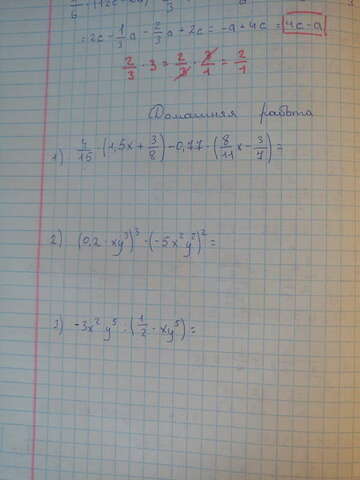 = 2c - 1/3 a - 2/3 a + 2c = -a + 4c = 4c - a
2/3 · 3 = 2/3 · 3/1 = 2/1
Домашняя работа
1) 4/15 · (1,5x + 3/8) - 0,77 · (8/11 x - 3/7) =
2) (0,2 · xy³)³ · (-5x²y²)² =
3) -3x²y⁵ : (1/2 · xy⁵) =